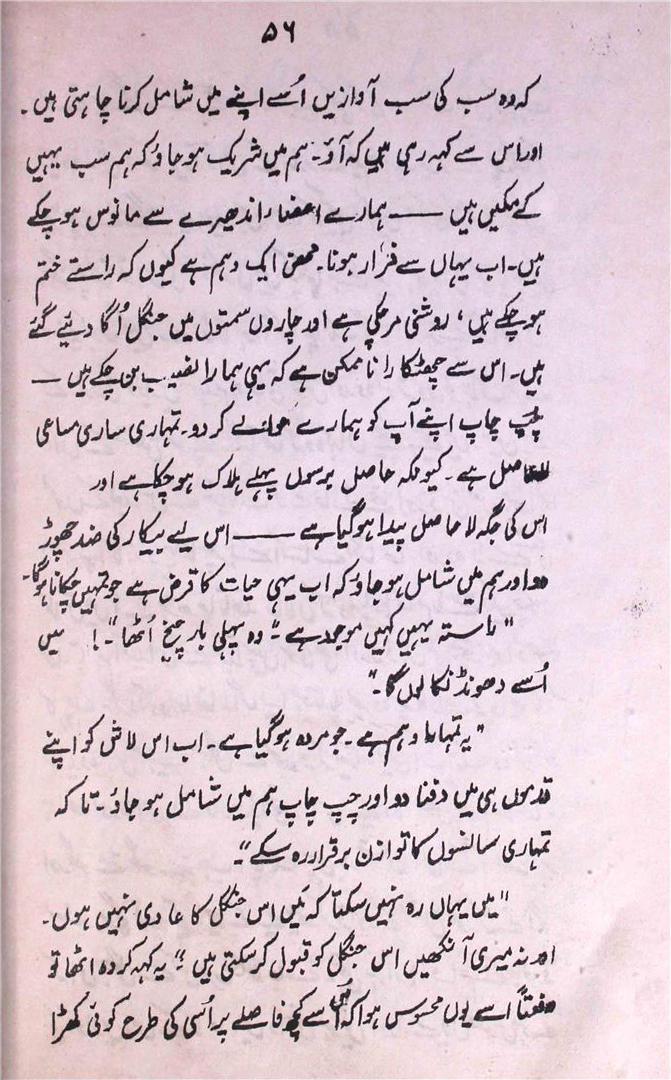 ۵۶
کہ وہ سب کی سب آوازیں اُسے اپنے میں شامل کرنا چاہتی ہیں۔
اور اس سے کہہ رہی ہیں کہ آؤ۔ ہم میں شریک ہو جاؤ کہ ہم سب یہیں
کے مکیں ہیں —— ہمارے اعضاء اندھیرے سے مانوس ہو چکے
ہیں۔ اب یہاں سے فرار ہونا۔ محض ایک وہم ہے کیوں کہ راستے ختم
ہو چکے ہیں، روشنی مر چکی ہے اور چاروں سمتوں میں جنگل اُگا دئیے گئے
ہیں۔ اس سے چھٹکارا ناممکن ہے کہ یہی ہمارا نصیب بن چکے ہیں —
چپ چاپ اپنے آپ کو ہمارے حوالے کر دو۔ تمہاری ساری مساعی
لاحاصل ہے۔ کیونکہ حاصل برسوں پہلے ہلاک ہو چکا ہے اور
اس کی جگہ لاحاصل پیدا ہو گیا ہے —— اس لیے بیکار کی ضد چھوڑ
دو اور ہم میں شامل ہو جاؤ کہ اب یہی حیات کا قرض ہے جو تمہیں چکانا ہو گا۔
"راستہ یہیں کہیں موجود ہے" وہ پہلی بار چیخ اُٹھا"۔! میں
اُسے ڈھونڈ نکالوں گا۔"
"یہ تمہارا وہم ہے۔ جو مردہ ہو گیا ہے۔ اب اس لاش کو اپنے
قدموں ہی میں دفنا دو اور چپ چاپ ہم میں شامل ہو جاؤ۔ تا کہ
تمہاری سانسوں کا توازن برقرار رہ سکے"۔
"میں یہاں رہ نہیں سکتا کہ میں اس جنگل کا عادی نہیں ہوں۔
اور نہ میری آنکھیں اس جنگل کو قبول کر سکتی ہیں" یہ کہہ کر وہ اٹھا تو
دفعتاً اسے یوں محسوس ہوا کہ اُس سے کچھ فاصلے پر اُسی کی طرح کوئی کھڑا